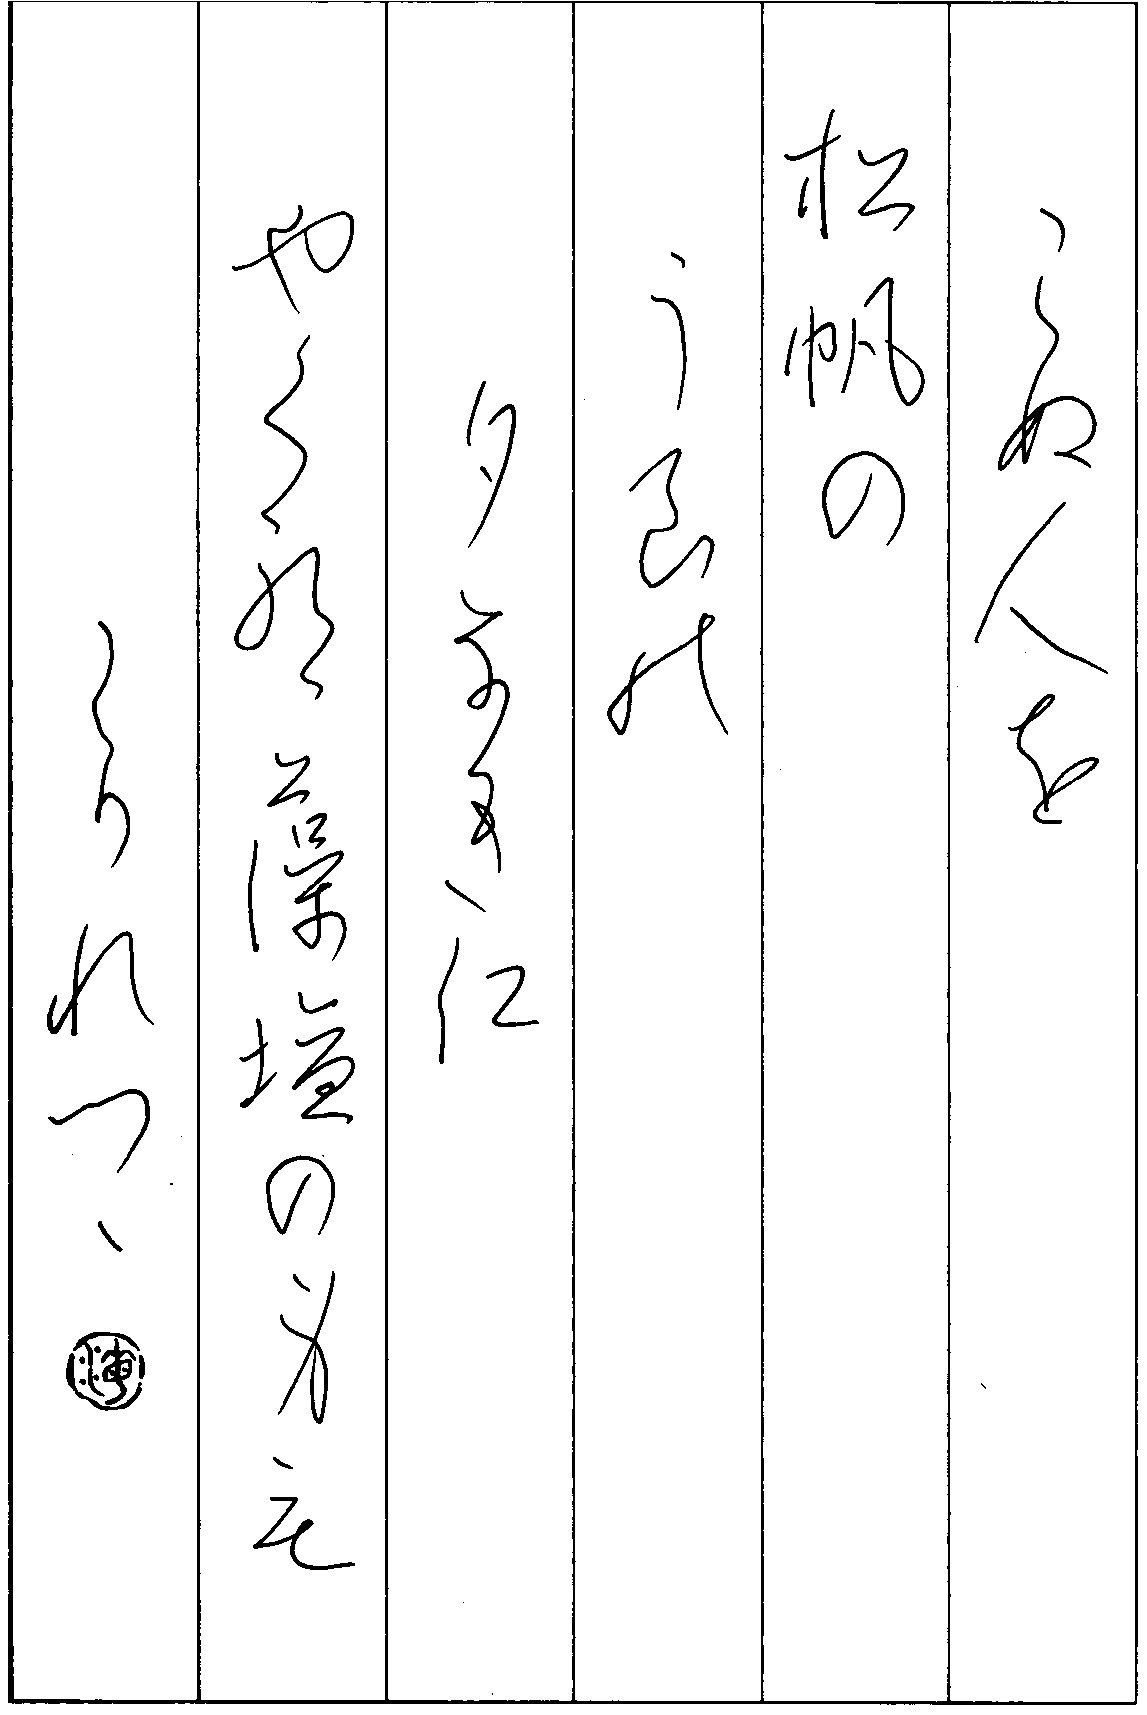 こぬ人を
松帆の
うらの
夕なぎに
やくや藻塩の身も
こがれつゝ